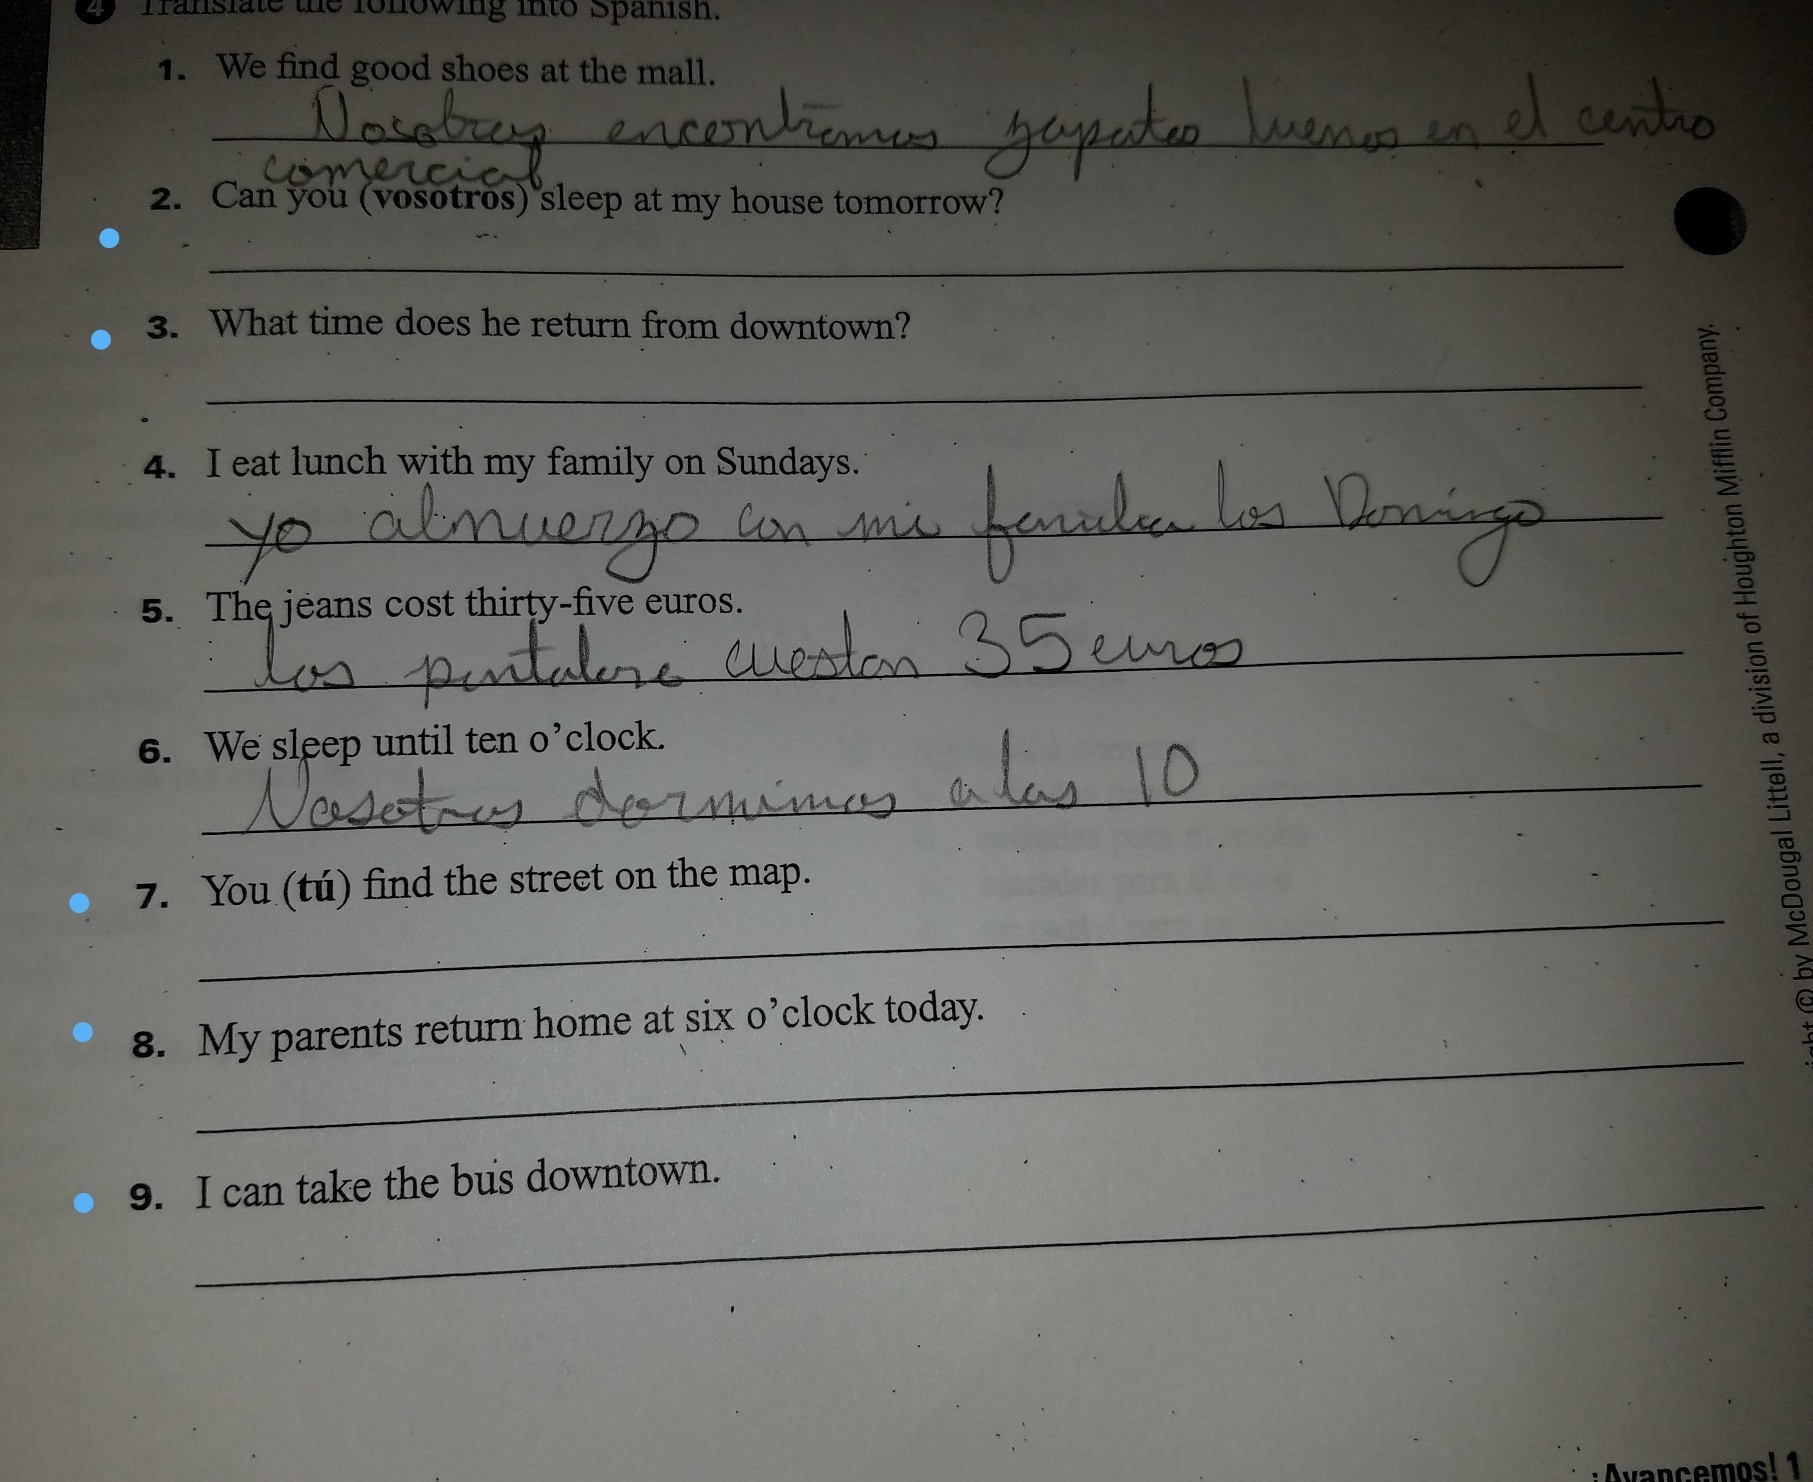 4 Translate the following into Spanish.
1. We find good shoes at the mall.
Nosotros encontramos zapatos buenos en el centro
comercial
2. Can you (vosotros) sleep at my house tomorrow?
3. What time does he return from downtown?
4. I eat lunch with my family on Sundays.
yo almuerzo con mi familia los Domingo
5. The jeans cost thirty-five euros.
los pantalone cuestan 35 euros
6. We sleep until ten o'clock.
Nosotros dormimos a las 10
7. You (tú) find the street on the map.
8. My parents return home at six o'clock today.
9. I can take the bus downtown.
© by McDougal Littell, a division of Houghton Mifflin Company.
¡Avancemos! 1